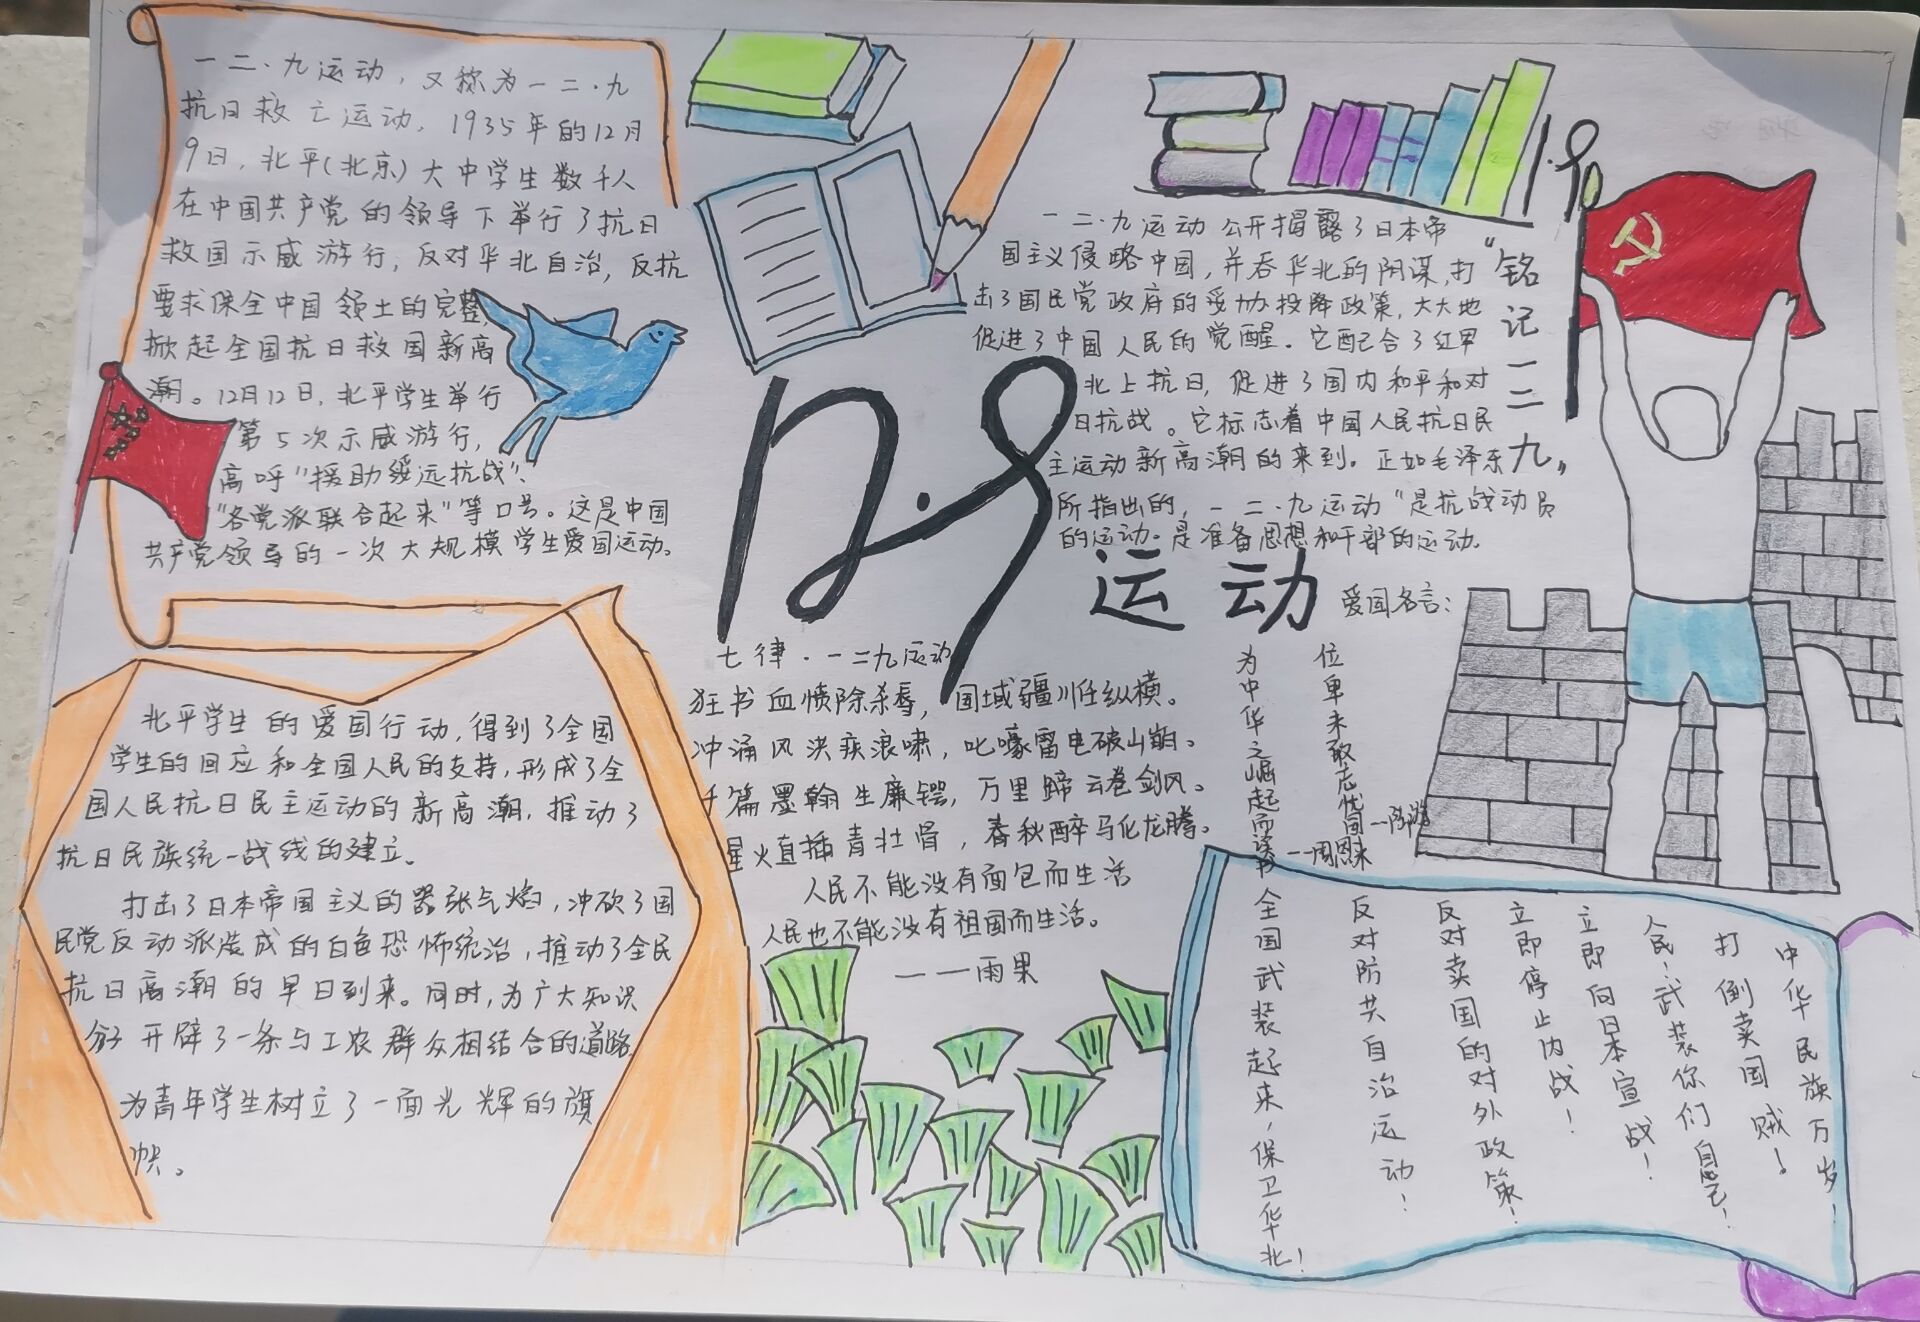 一二·九运动，又称为一二·九
抗日救亡运动，1935年的12月
9日，北平(北京)大中学生数千人
在中国共产党的领导下举行了抗日
救国示威游行，反对华北自治，反抗
要求保全中国领土的完整，
掀起全国抗日救国新高
潮。12月12日，北平学生举行
第5次示威游行，
高呼"援助绥远抗战"、
"各党派联合起来"等口号。这是中国
共产党领导的一次大规模学生爱国运动。
北平学生的爱国行动，得到了全国
学生的回应和全国人民的支持，形成了全
国人民抗日民主运动的新高潮，推动了
抗日民族统一战线的建立。
打击了日本帝国主义的嚣张气焰，冲破了国
民党反动派造成的白色恐怖统治，推动了全民
抗日高潮的早日到来。同时，为广大知识
分子开辟了一条与工农群众相结合的道路
为青年学生树立了一面光辉的旗
帜。
12.9
运动
1.9
"铭记一二九"
一二·九运动公开揭露了日本帝
国主义侵略中国，并吞华北的阴谋，打
击了国民党政府的妥协投降政策，大大地
促进了中国人民的觉醒。它配合了红军
北上抗日，促进了国内和平和对
日抗战。它标志着中国人民抗日民
主运动新高潮的来到。正如毛泽东
所指出的，一二·九运动"是抗战动员
的运动。是准备思想和干部的运动。
七律·一二九运动
狂书血愤除杀辱，国域疆川任纵横。
冲涌风洪疾浪啸，叱嚎雷电破山崩。
千篇墨翰生廉锷，万里蹄云卷剑风。
星火直插青壮骨，春秋醉马化龙腾。
人民不能没有面包而生活
人民也不能没有祖国而生活。
——雨果
爱国名言：
位卑未敢忘忧国—陆游
为中华之崛起而读书—周恩来
中华民族万岁！
打倒卖国贼！
人民！武装你们自己！
立即向日本宣战！
立即停止内战！
反对卖国的对外政策！
反对防共自治运动！
全国武装起来，保卫华北！